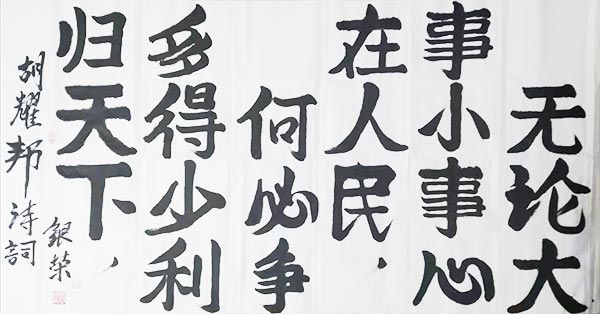 无论大
事小事心
在人民，
何必争
多得少利
归天下，
胡耀邦诗词
银荣